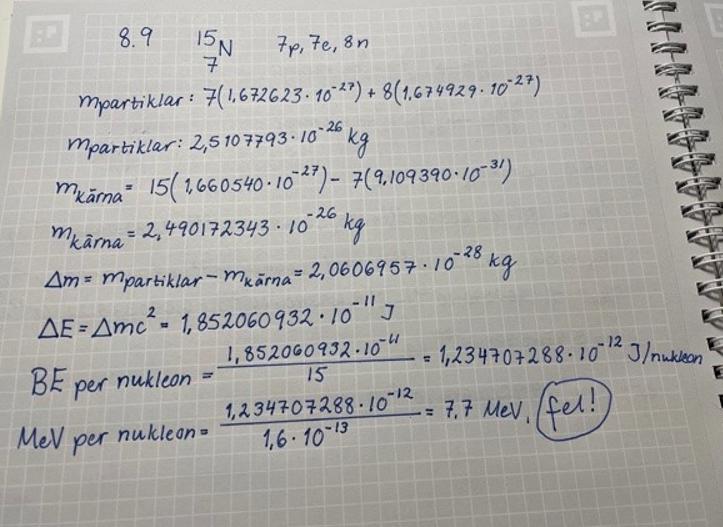 8.9 15 7 N 7p, 7e, 8n
mpartiklar: 7(1,672623·10⁻²⁷) + 8(1,674929·10⁻²⁷)
mpartiklar: 2,5107793·10⁻²⁶ kg
mkärna = 15(1,660540·10⁻²⁷) - 7(9,109390·10⁻³¹)
mkärna = 2,490172343·10⁻²⁶ kg
Δm = mpartiklar - mkärna = 2,0606957·10⁻²⁸ kg
ΔE = Δmc² = 1,852060932·10⁻¹¹ J
BE per nukleon = 1,852060932·10⁻¹¹ / 15 = 1,234707288·10⁻¹² J/nukleon
MeV per nukleon = 1,234707288·10⁻¹² / 1,6·10⁻¹³ = 7,7 MeV, fel!